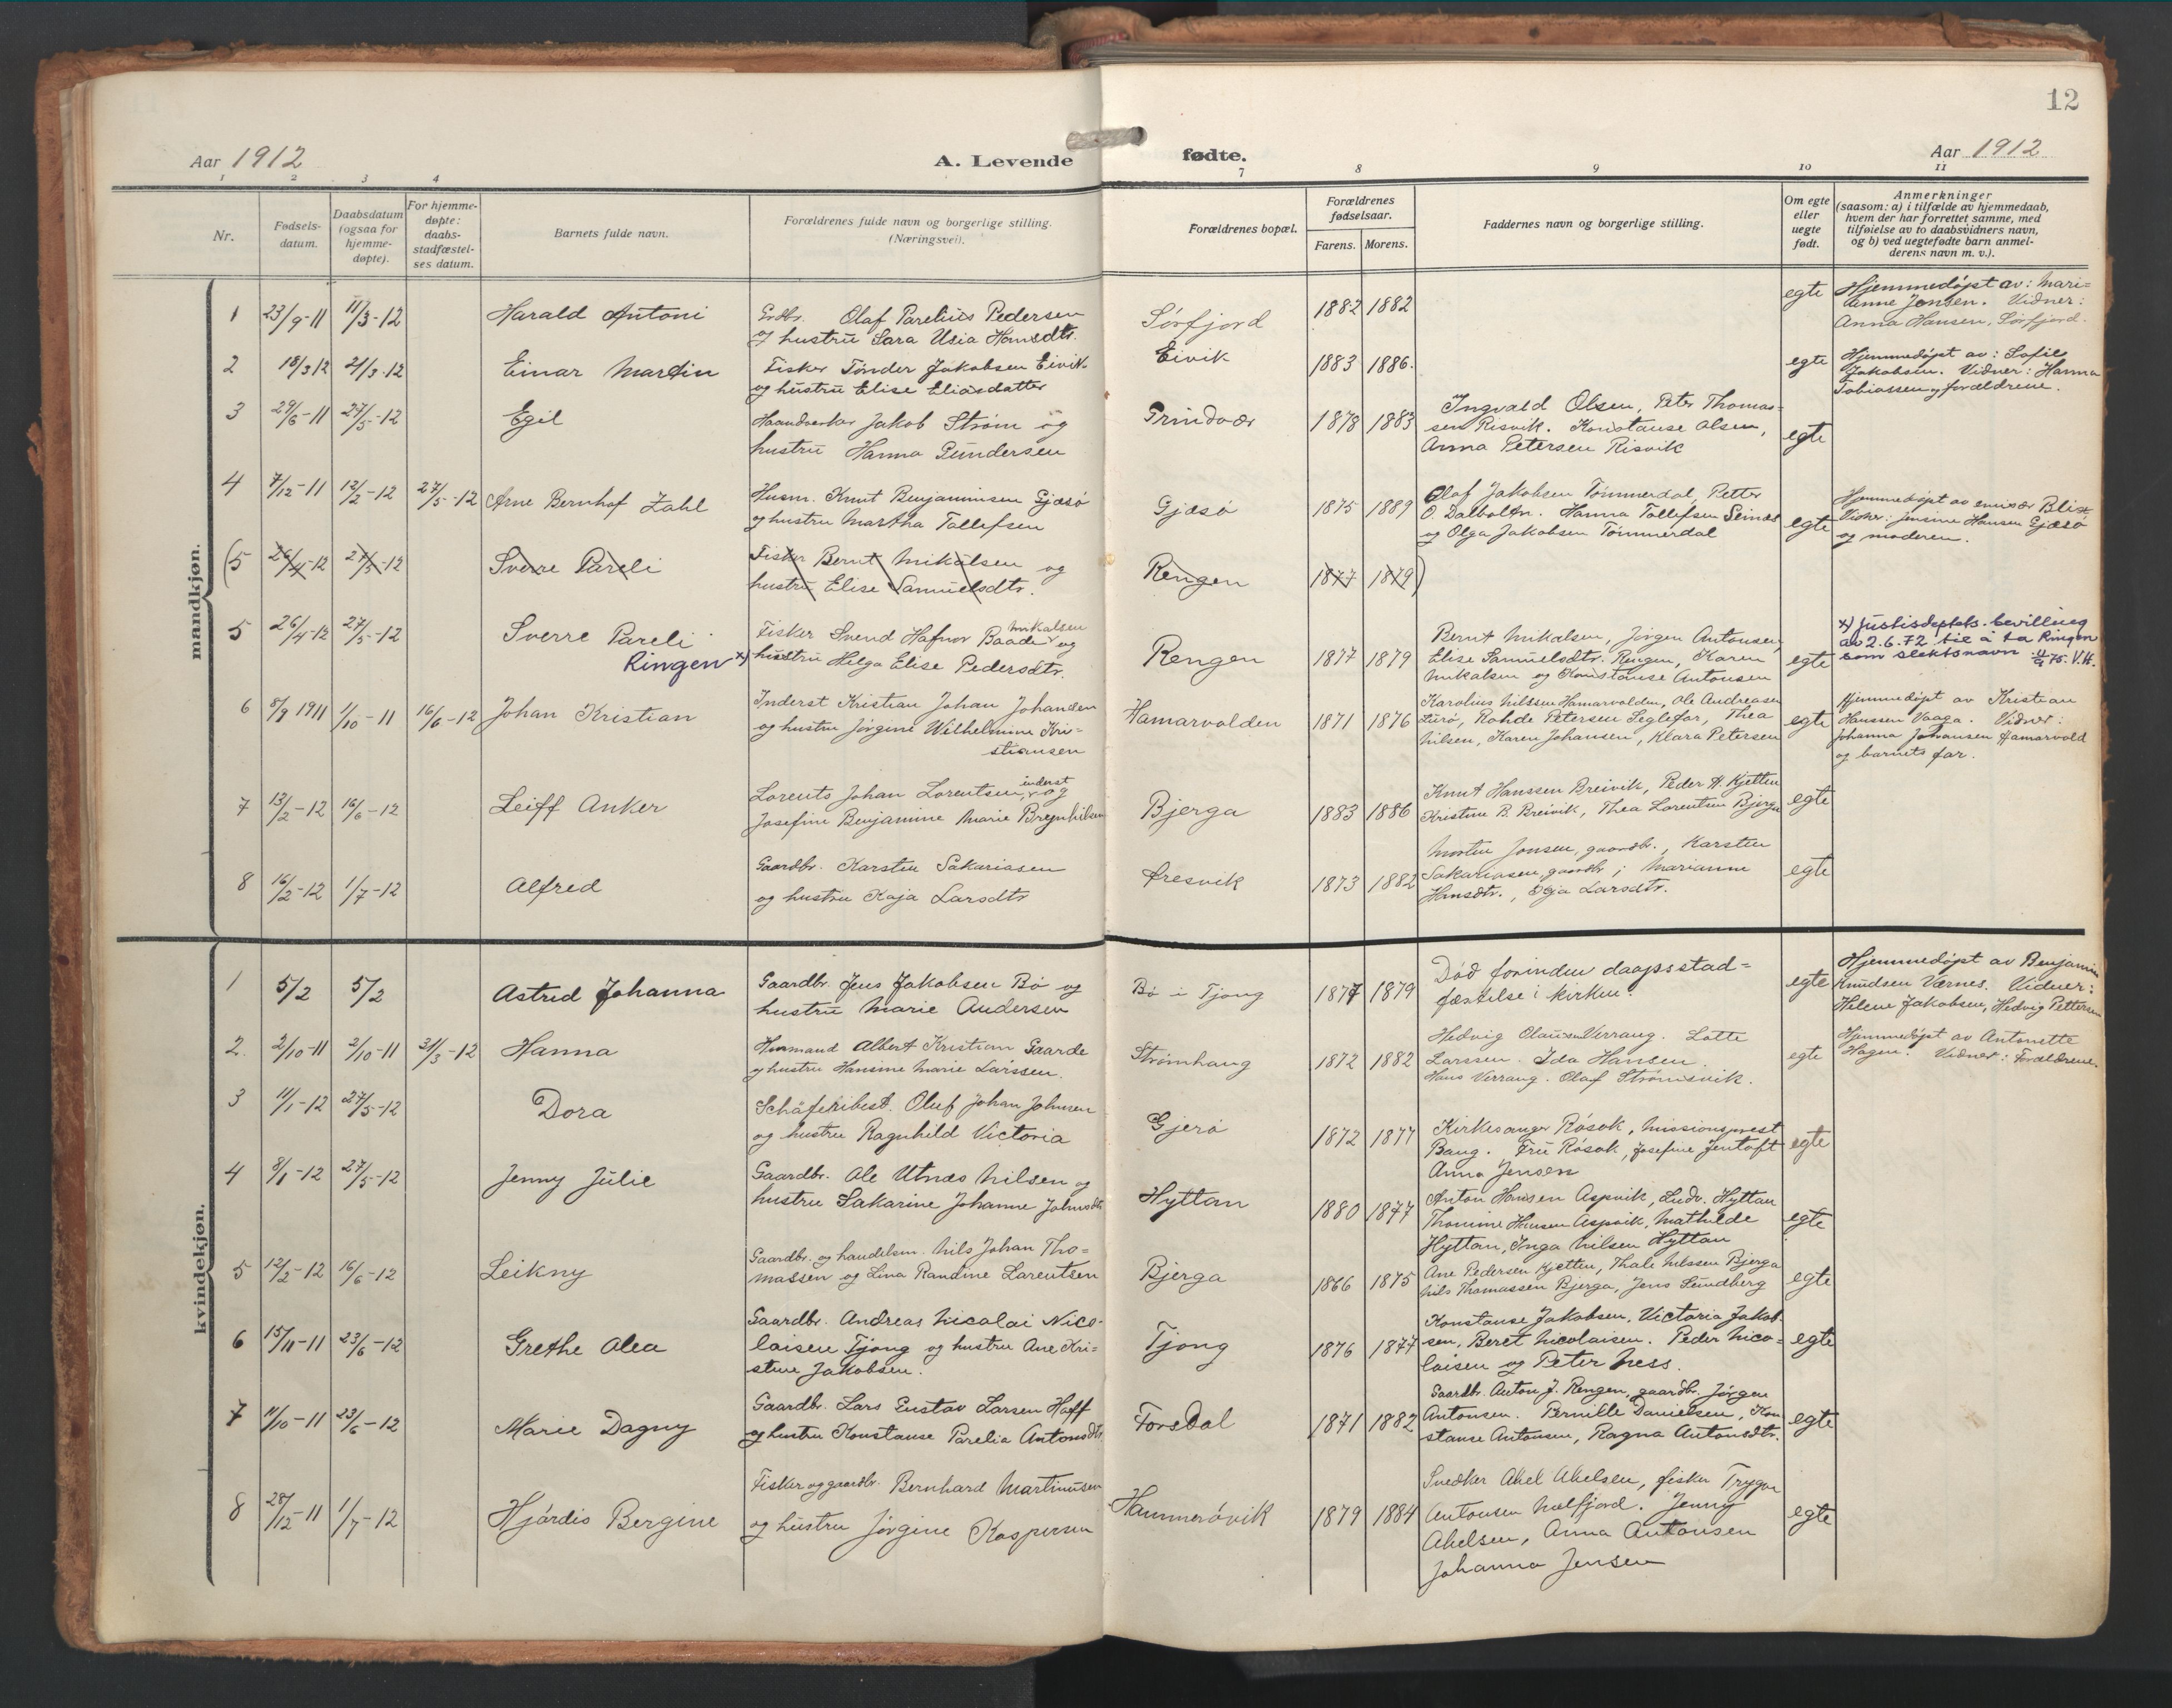 12
Aar 1912 A. Levende fødte. Aar 1912
1 2 3 4 7 8 9 10 11
Nr.
Fødsels-
datum.
Daabsdatum
(ogsaa for
hjemme-
døpte).
For hjemme-
døpte:
daabs-
stadfæstel-
ses datum.
Barnets fulde navn.
Forældrenes fulde navn og borgerlige stilling.
(Næringsvei).
Forældrenes bopæl.
Forældrenes
fødselsaar.
Farens. Morens.
Faddernes navn og borgerlige stilling.
Om egte
eller
uegte
født.
Anmerkninger
(saasom: a) i tilfælde av hjemmedaab,
hvem der har forrettet samme, med
tilføielse av to daabsvidners navn,
og b) ved uegtefødte barn anmel-
derens navn m. v.).
mandkjøn.
1 23/9-11 11/3-12 Harald Antoni
Grdbr. Olaf Parelius Pedersen
og hustru Sara Usia Hansdtr.
Sørfjord 1882 1882 egte
Hjemmedøpt av: Mari-
Anne Jensen. Vidner:
Anna Hansen, Sørfjord.
2 18/3 12 21/3-12 Einar Martin
Fisker Tønder Jakobsen Eivik
og hustru Elise Eliasdatter
Eivik 1883 1886. egte
Hjemmedøpt av: Sofie
Jakobsen. Vidner: Hanna
Tobiassen og forældrene.
3 29/6-11 27/5-12 Egil
Haandverker Jakob Strøm og
hustru Hanna Gundersen
Grindvær 1878 1883
Ingvald Olsen, Peter Thomas-
sen Risvik. Konstanse Olsen,
Anna Petersen Risvik
egte
4 7/12-11 12/2-12 27/5-12 Arne Bernhof Zahl
Husm. Knut Benjaminsen Gjæsø
og hustru Martha Tollefsen
Gjæsø 1875 1889
Olaf Jakobsen Tømmerdal, Petter
O. Dalboltn. Hanna Tollefsen Seines
og Olga Jakobsen Tømmerdal
egte
Hjemmedøpt av emissær Blix
Vidner: Jensine Hansen Gjæsø
og moderen.
(5 26/4-12 27/5-12 Sverre Pareli
Fisker Bernt Mikalsen og
hustru Elise Samuelsdtr.
Rengen 1877 1879)
5 26/4-12 27/5-12 Sverre Pareli
Ringen x)
Mikalsen
Fisker Svend Hafnor Baade og
hustru Helga Elise Pedersdtr.
Rengen 1877 1879
Bernt Mikalsen, Jørgen Antonsen,
Elise Samuelsdtr. Rengen, Karen
Mikalsen og Konstanse Antonsen
egte
x) Justisdeptets. bevilling
av 2.6.72 til å ta Ringen
som slektsnavn. 4/4 75. V.H.
6 8/9 1911 1/10-11 16/6-12 Johan Kristian
Inderst Kristian Johan Johansen
og hustru Jørgine Wilhelmine Kri-
stiansen
Hamarvolden 1871 1876
Karolius Nilssen Hamarvolden, Ole Andreasen
Lurø, Rohde Petersen Seglefor, Thea
Nilsen, Karen Johansen, Klara Petersen
egte
Hjemmedøpt av Kristian
Hanssen Vaaga. Vidner:
Johanna Johansen Hamarvold
og barnets far.
7 13/2-12 16/6-12 Leiff Anker
inderst
Lorents Johan Lorentsen, og
Josefine Benjamine Marie Brynhilsen
Bjerga 1883 1886
Knut Hanssen Breivik, Peder H. Kjetten
Kristine B. Breivik, Thea Lorentsen Bjerga
egte
8 16/2-12 1/7-12 Alfred
Gaardbr. Karsten Sakariasen
og hustru Kaja Larsdtr
Øresvik 1873 1882
Morten Jonsen, gaardbr., Karsten
Sakariasen, gaardbr; Marianne
Hansdtr., Kaja Larsdtr.
egte
kvindekjøn.
1 5/2 5/2 Astrid Johanna
Gaardbr. Jens Jakobsen Bø og
hustru Marie Andersen
Bø i Tjong 1877 1879
Død forinden daapsstad-
fæstelse i kirken.
egte
Hjemmedøpt av Benjamin
Knudsen Værnes. Vidner:
Helene Jakobsen, Hedvig Pettersen
2. 2/10-11 2/10-11 31/3-12 Hanna
Husmand Albert Kristian Gaarde
og hustru Hansine Marie Larssen.
Strømhaug 1872 1882
Hedvig Olausen Verrang. Lotte
Larssen. Ida Hansen.
Hans Verrang. Olaf Strømsvik.
egte
Hjemmedøpt av Antonette
Hagen. Vidner: Forældrene.
3 11/1-12 27/5-12 Dora
Schäferibest. Oluf Johan Johnsen
og hustru Ragnhild Victoria
Gjerø 1872 1877
Kirkesanger Røsok, missionsprest
Bang. Fru Røsok, Josefine Jentoft
Anna Jensen
egte
4 8/1-12 27/5-12 Jenny Julie
Gaardbr. Ole Utnæs Nilsen og
hustru Sakarine Johanne Johnsdtr
Hyttan 1880 1877
Anton Hansen Aspvik, Ludv. Hyttan
Thomine Hansen Aspvik, Mathilde
Hyttan, Inga Nilsen Hyttan
egte
5 12/2-12 16/6-12 Leikny
Gaardbr. og handelsm. Nils Johan Tho-
massen og Lina Randine Lorentsen
Bjerga 1866 1875
Ane Pedersen Kjetten, Thale Nilssen Bjerga
Nils Thomassen Bjerga, Jens Sundberg
egte
6 15/11-11 23/6-12 Grethe Olea
Gaardbr. Andreas Nicolai Nico-
laisen Tjong og hustru Ane Kri-
stine Jakobsen.
Tjong 1876 1877
Konstanse Jakobsen, Victoria Jakob-
sen, Beret Nicolaisen. Peder Nico-
laisen og Peter Ness.
egte
7 11/10-11 23/6-12 Marie Dagny
Gaardbr. Lars Gustav Larsen Haff
og hustru Konstanse Parelia Antonsdtr.
Forsdal 1871 1882
Gaardbr. Anton J. Rengen, gaardbr. Jørgen
Antonsen. Pernille Danielsen, Kon
stanse Antonsen, Ragna Antonsdtr.
egte
8 28/12-11 1/7-12 Hjørdis Bergine
Fisker og gaardbr. Bernhard Martinusen
og hustru Jørgine Kaspersen
Hammerøvik 1879 1884
Snedker Akel Akelsen, fisker Trygve
Antonsen Melfjord. Jenny
Akelsen, Anna Antonsen
Johanna Jensen
egte